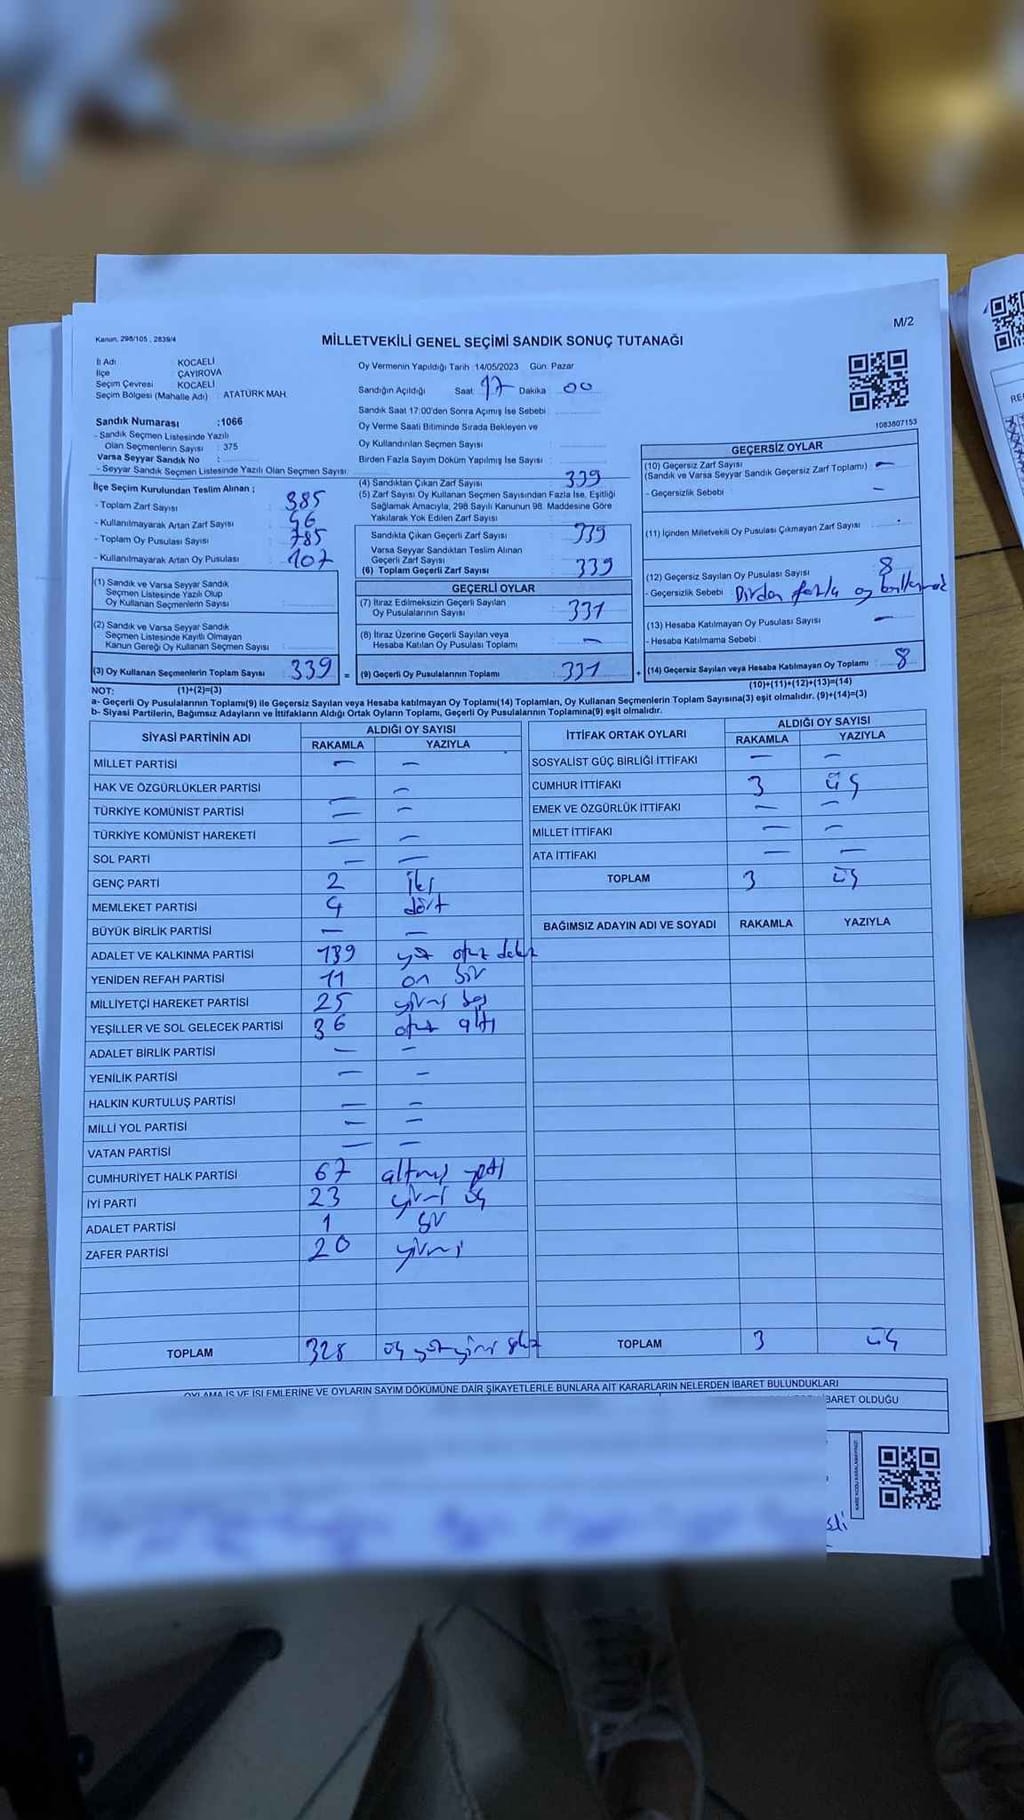 M/2
Kanun. 298/105 , 2839/4
MİLLETVEKİLİ GENEL SEÇİMİ SANDIK SONUÇ TUTANAĞI
İl Adı : KOCAELİ
İlçe : ÇAYIROVA
Seçim Çevresi : KOCAELİ
Seçim Bölgesi (Mahalle Adı) : ATATÜRK MAH.
Sandık Numarası :1066
- Sandık Seçmen Listesinde Yazılı
Olan Seçmenlerin Sayısı : 375
Varsa Seyyar Sandık No :
- Seyyar Sandık Seçmen Listesinde Yazılı Olan Seçmen Sayısı:
Oy Vermenin Yapıldığı Tarih 14/05/2023 Gün. Pazar
Sandığın Açıldığı Saat 17 Dakika 00
Sandık Saat 17:00'den Sonra Açımış İse Sebebi :
Oy Verme Saati Bitiminde Sırada Bekleyen ve
Oy Kullandırılan Seçmen Sayısı :
Birden Fazla Sayım Döküm Yapılmış İse Sayısı :
1083807153
İlçe Seçim Kurulundan Teslim Alınan ;
- Toplam Zarf Sayısı : 385
- Kullanılmayarak Artan Zarf Sayısı : 46
- Toplam Oy Pusulası Sayısı : 785
- Kullanılmayarak Artan Oy Pusulası : 107
(1) Sandık ve Varsa Seyyar Sandık
Seçmen Listesinde Yazılı Olup
Oy Kullanan Seçmenlerin Sayısı :
(2) Sandık ve Varsa Seyyar Sandık
Seçmen Listesinde Kayıtlı Olmayan
Kanun Gereği Oy Kullanan Seçmen Sayısı :
(3) Oy Kullanan Seçmenlerin Toplam Sayısı : 339
(4) Sandıktan Çıkan Zarf Sayısı : 339
(5) Zarf Sayısı Oy Kullanan Seçmen Sayısından Fazla İse, Eşitliği
Sağlamak Amacıyla, 298 Sayılı Kanunun 98. Maddesine Göre
Yakılarak Yok Edilen Zarf Sayısı :
Sandıkta Çıkan Geçerli Zarf Sayısı : 339
Varsa Seyyar Sandıktan Teslim Alınan
Geçerli Zarf Sayısı
(6) Toplam Geçerli Zarf Sayısı : 339
GEÇERLİ OYLAR
(7) İtiraz Edilmeksizin Geçerli Sayılan
Oy Pusulalarının Sayısı : 331
(8) İtiraz Üzerine Geçerli Sayılan veya
Hesaba Katılan Oy Pusulası Toplamı : —
= (9) Geçerli Oy Pusulalarının Toplamı : 331
GEÇERSİZ OYLAR
(10) Geçersiz Zarf Sayısı : —
(Sandık ve Varsa Seyyar Sandık Geçersiz Zarf Toplamı)
- Geçersizlik Sebebi : —
(11) İçinden Milletvekili Oy Pusulası Çıkmayan Zarf Sayısı :
(12) Geçersiz Sayılan Oy Pusulası Sayısı : 8
- Geçersizlik Sebebi Birden fazla oy
(13) Hesaba Katılmayan Oy Pusulası Sayısı : —
- Hesaba Katılmama Sebebi :
+ (14) Geçersiz Sayılan veya Hesaba Katılmayan Oy Toplamı : 8
NOT: (1)+(2)=(3)
(10)+(11)+(12)+(13)=(14)
a- Geçerli Oy Pusulalarının Toplamı(9) ile Geçersiz Sayılan veya Hesaba katılmayan Oy Toplamı(14) Toplamları, Oy Kullanan Seçmenlerin Toplam Sayısına(3) eşit olmalıdır. (9)+(14)=(3)
b- Siyasi Partilerin, Bağımsız Adayların ve İttifakların Aldığı Ortak Oyların Toplamı, Geçerli Oy Pusulalarının Toplamına(9) eşit olmalıdır.
SİYASİ PARTİNİN ADI ALDIĞI OY SAYISI
RAKAMLA YAZIYLA
MİLLET PARTİSİ — —
HAK VE ÖZGÜRLÜKLER PARTİSİ — —
TÜRKİYE KOMÜNİST PARTİSİ — —
TÜRKİYE KOMÜNİST HAREKETİ — —
SOL PARTİ — —
GENÇ PARTİ 2 iki
MEMLEKET PARTİSİ 4 dört
BÜYÜK BİRLİK PARTİSİ — —
ADALET VE KALKINMA PARTİSİ 139 yüz otuz dokuz
YENİDEN REFAH PARTİSİ 11 on bir
MİLLİYETÇİ HAREKET PARTİSİ 25 yirmi beş
YEŞİLLER VE SOL GELECEK PARTİSİ 36 otuz altı
ADALET BİRLİK PARTİSİ — —
YENİLİK PARTİSİ — —
HALKIN KURTULUŞ PARTİSİ — —
MİLLİ YOL PARTİSİ — —
VATAN PARTİSİ — —
CUMHURİYET HALK PARTİSİ 67 altmış yedi
İYİ PARTİ 23 yirmi üç
ADALET PARTİSİ 1 bir
ZAFER PARTİSİ 20 yirmi
TOPLAM 328 üç yüz yirmi sekiz
İTTİFAK ORTAK OYLARI ALDIĞI OY SAYISI
RAKAMLA YAZIYLA
SOSYALİST GÜÇ BİRLİĞİ İTTİFAKI — —
CUMHUR İTTİFAKI 3 üç
EMEK VE ÖZGÜRLÜK İTTİFAKI — —
MİLLET İTTİFAKI — —
ATA İTTİFAKI — —
TOPLAM 3 üç
BAĞIMSIZ ADAYIN ADI VE SOYADI RAKAMLA YAZIYLA
TOPLAM 3 üç
OYLAMA İŞ VE İŞLEMLERİNE VE OYLARIN SAYIM DÖKÜMÜNE DAİR ŞİKAYETLERLE BUNLARA AİT KARARLARIN NELERDEN İBARET BULUNDUKLARI
İBARET OLDUĞU